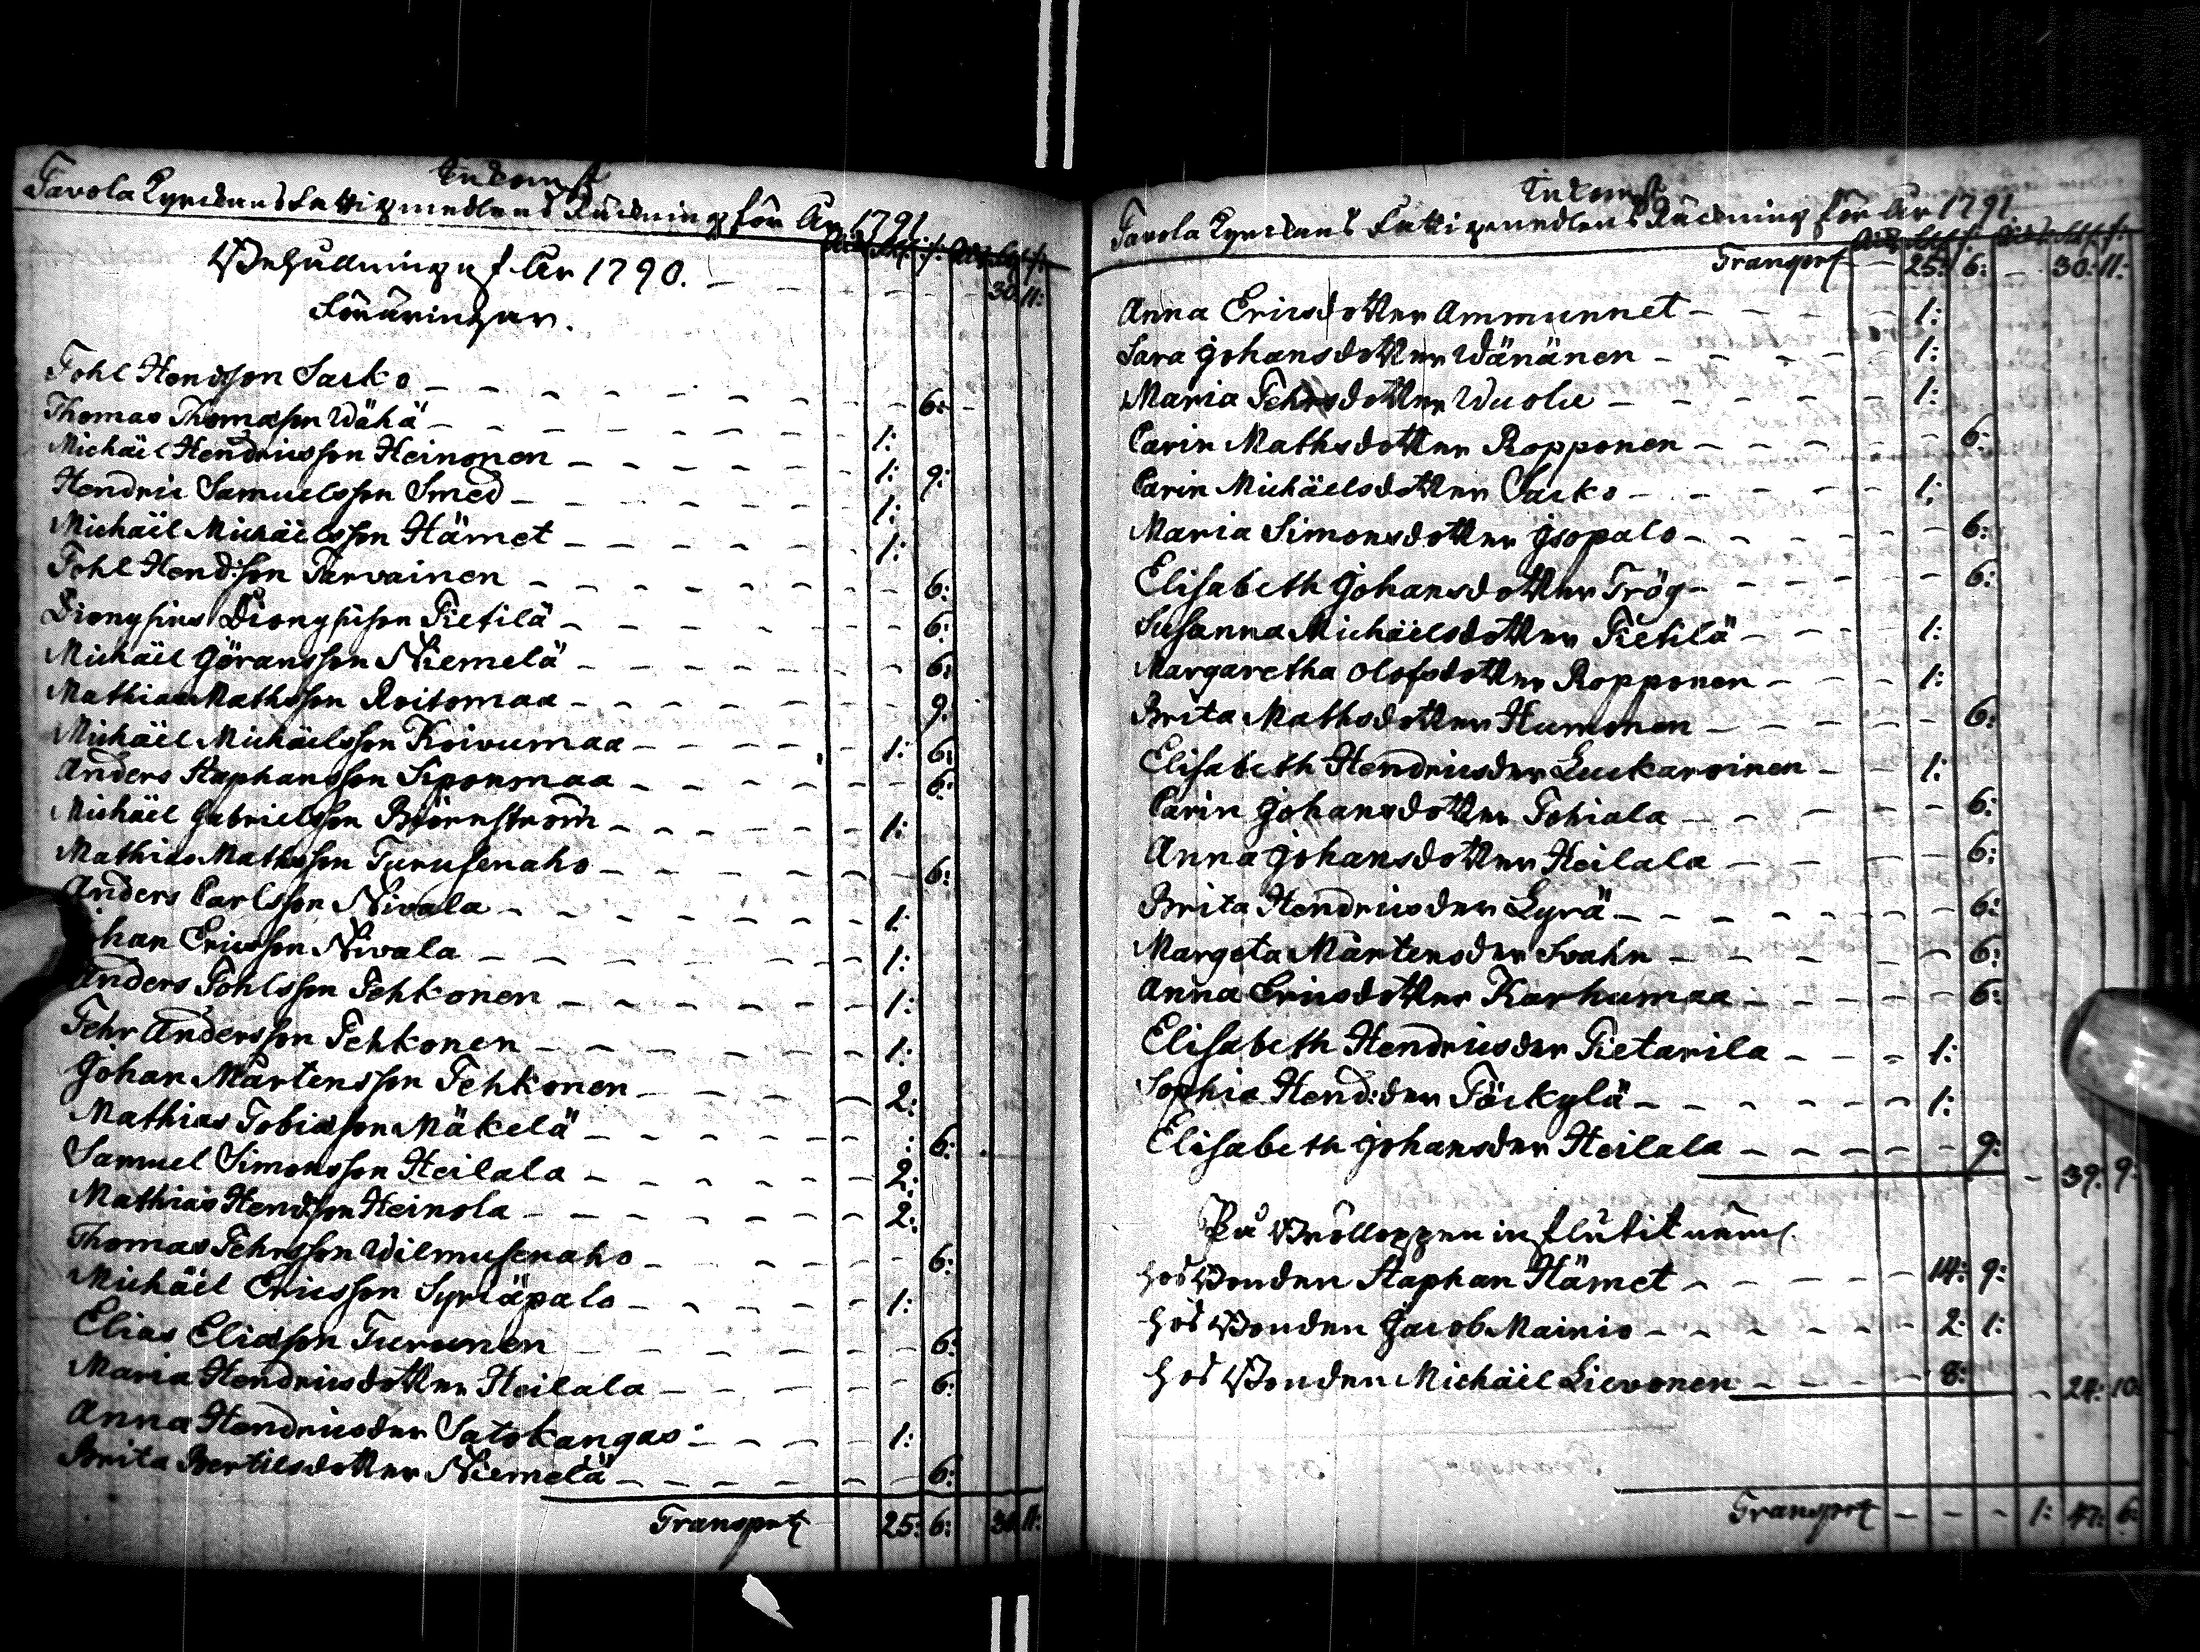 Inkomst
Pavola Kyrckans Fattigmedlens Räckning för År 1791
Rd. Sk. f. Rd. Sk. f.
Behållning af År 1790. 30: 11:
Föräringar.
Pohl Hendsson Sarko 6:
Thomas Thomasson Wähä 1:
Michäel Hendricsson Heinonen 1: 9:
Hendric Samuelsson Smed 1:
Michäel Michäelsson Hämet 1:
Pohl Hendsson Parvainen 6:
Dionysius Dionysiison Pietilä 6:
Michäel Göransson Niemelä 6:
Mathias Mathsson Roitomaa 9:
Michäel Michäelsson Koivumaa 1: 6:
Anders Staphansson Siponmaa 6:
Michäel Gabrielsson Björnström 1:
Mathias Mathsson Turusenaho 6:
Anders Carlsson Nivala 1:
Johan Ericsson Nivala 1:
Anders Pohlsson Pehkonen 1:
Pehr Andersson Pehkonen 1:
Johan Mårtensson Pehkonen 2:
Mathias Tobiasson Mäkelä : 6:
Samuel Simonsson Heilala 2:
Mathias Hendsson Heinola 2:
Thomas Pehrsson Wilmusenaho 6:
Michäel Ericsson Syriäpalo 1:
Elias Eliasson Turunen 6:
Maria Hendricsdotter Heilala 6:
Anna Hendricsder Satokangas 1:
Brita Bertilsdotter Niemelä 6:
Transport 25: 6: 30: 11:
Inkomst
Pavola Kyrckans Fattigmedlens Räckning för År 1791.
Rd. Sk. f. Rd. Sk. f.
Transport 25: 6: 30: 11:
Anna Ericsdotter Ammunnet 1:
Sara Johansdotter Wänänen 1:
Maria Pehrsdotter Wuolu 1:
Carin Mathsdotter Ropponen 6:
Carin Michäelsdotter Sarko 1:
Maria Simonsdotter Isopalo 6:
Elisabeth Johansdotter Trög 6:
Susanna Michäelsdotter Pietilä 1:
Margaretha Olofsdotter Ropponen 1:
Brita Mathsdotter Humonen 6:
Elisabeth Hendricsder Luukaroinen 1:
Carin Johansdotter Pohiala 6:
Anna Johansdotter Heilala 6:
Brita Hendricsder Lyrä 6:
Margeta Mårtensder Svahn 6:
Anna Ericsdotter Karhumaa 6:
Elisabeth Hendricsder Pietarila 1:
Sophia Hend:der Pöckylä 1:
Elisabeth Johansder Heilala 9:
39: 9:
På Brölloppen influtit näml.
hos Bonden Staphan Hämet 14: 9:
hos Bonden Jacob Mainio 2: 1:
hos Bonden Michäel Lievonen 8:
24: 10:
Transport 1: 47: 6: